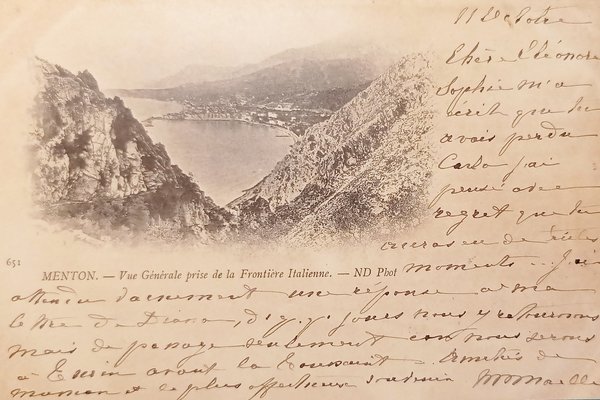 11 Octobre
Chère Eléonore
Sophie m'a
écrit que tu
avais perdu
Carlo j'ai
pensé avec
regret que tu
auras eu de tristes
moments... J'ai
651
MENTON. — Vue Générale prise de la Frontière Italienne. — ND Phot
attendu vainement une réponse à ma
lettre de Diano, d. q. q. jours nous y retournons
mais de passage seulement car nous serons
à Turin avant la Toussaint. Amitiés de
maman et le plus affectueux souvenir